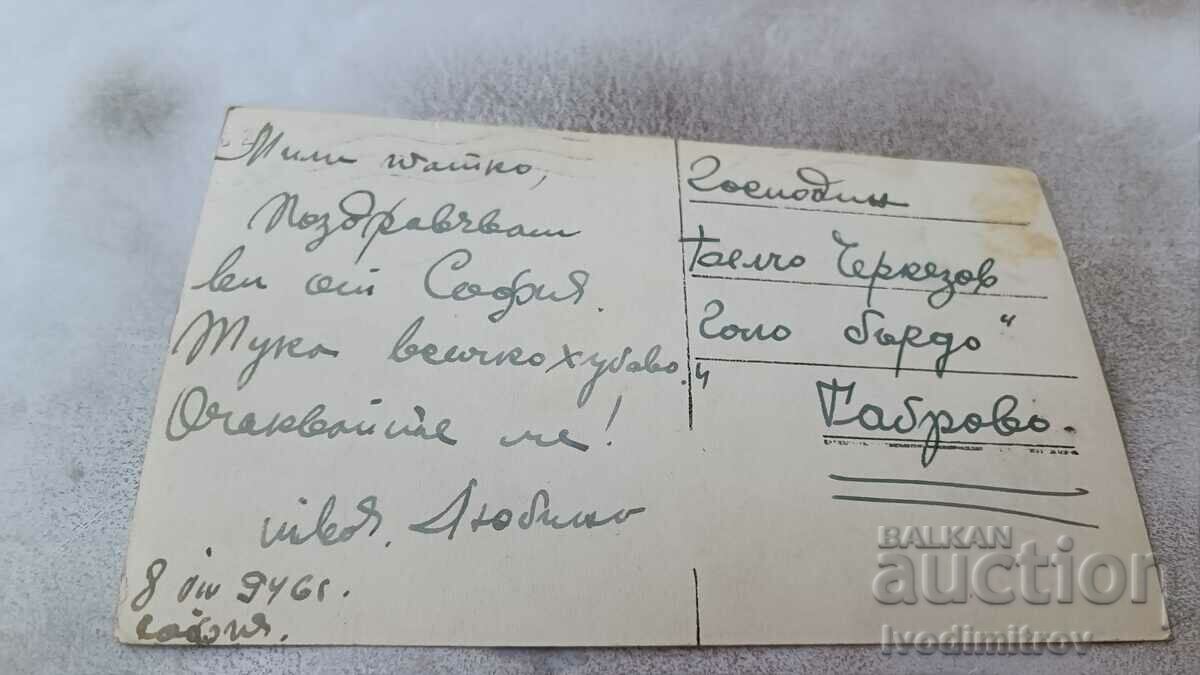 Мили татко,
Поздравявам
ви от София.
Тука всичко хубаво.
Очаквайте ме!
твоя. Любинка
8 VIII 946 г.
София.
Господин
Черкезов
"Голо бърдо"
Габрово.
BALKAN
auction
Ivodimitrov